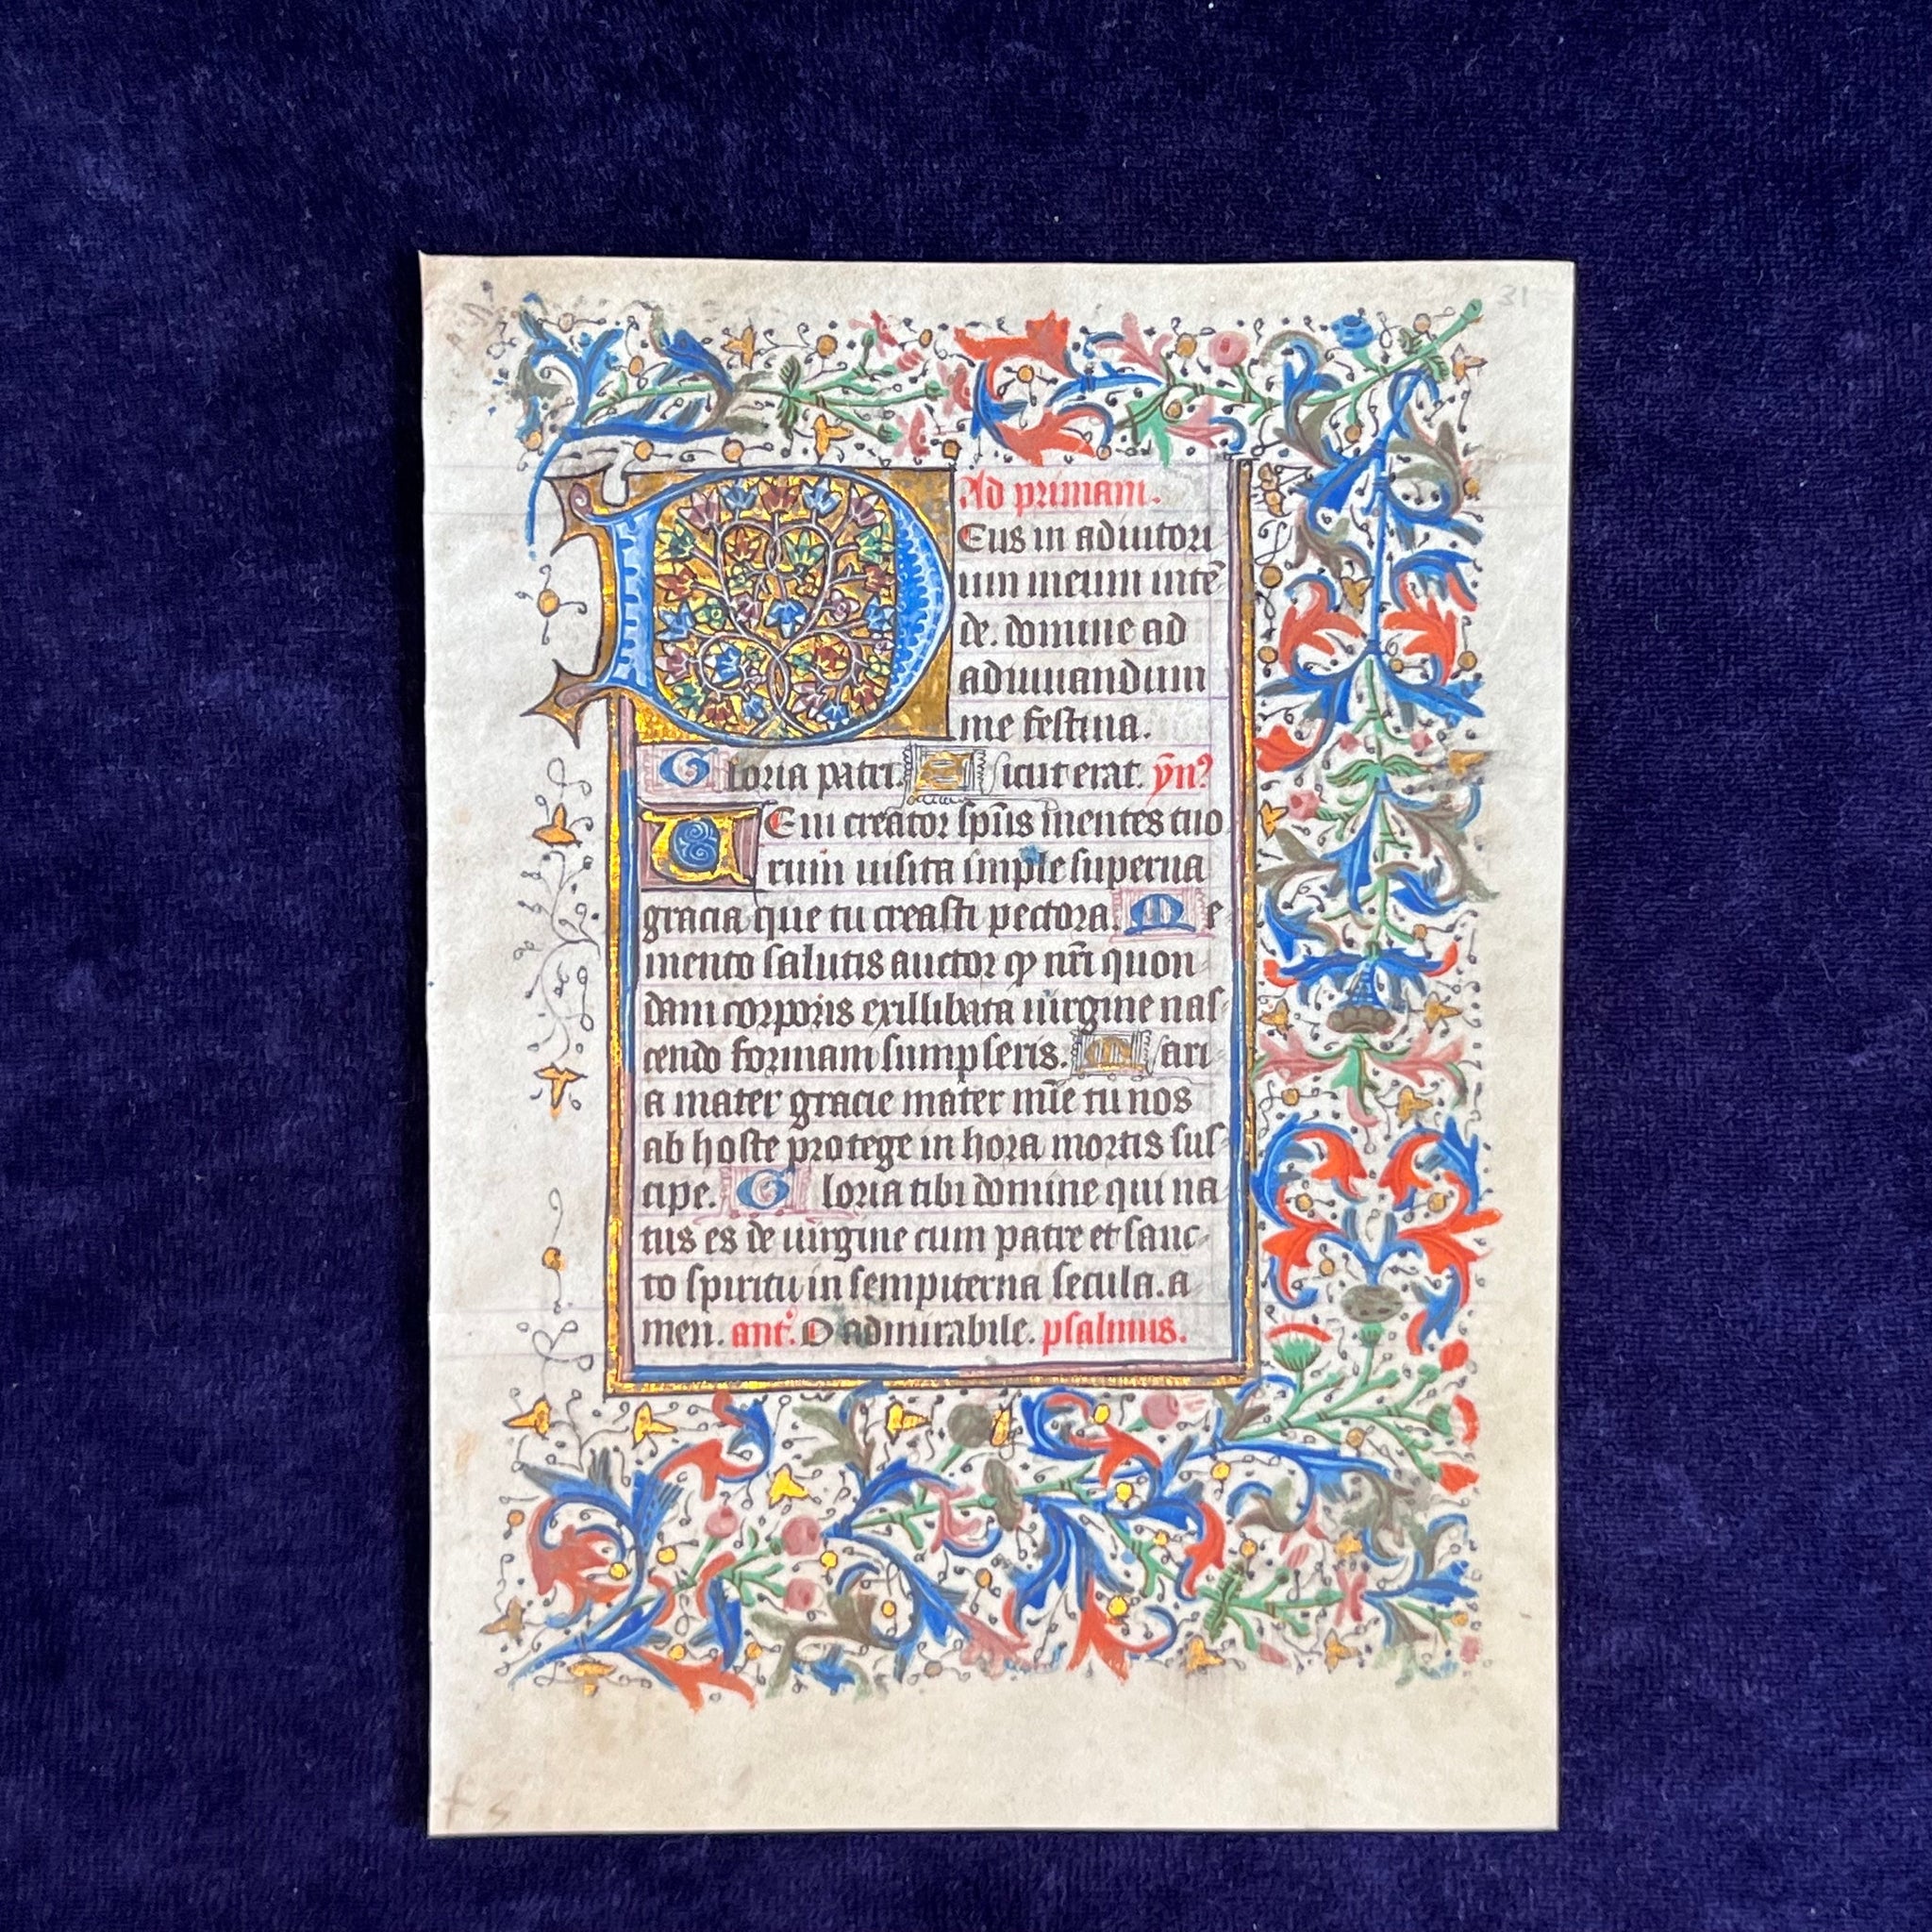 31
Ad primam.
Deus in adiutori
um meum intē
de. domine ad
adiuuandum
me festina.
Gloria patri. Sicut erat. ỹn?
Ueni creator spūs mentes tuo
rum uisita imple superna
gracia que tu creasti pectora. Me
mento salutis auctor ꝙ nr̄i quon
dam corporis exillibata uirgine nas
cendo formam sumpseris. Mari
a mater gracie mater mīe tu nos
ab hoste protege in hora mortis sus
cipe. Gloria tibi domine qui na
tus es de uirgine cum patre et sanc
to spiritu in sempiterna secula. a
men. ant. O admirabile. psalmus.